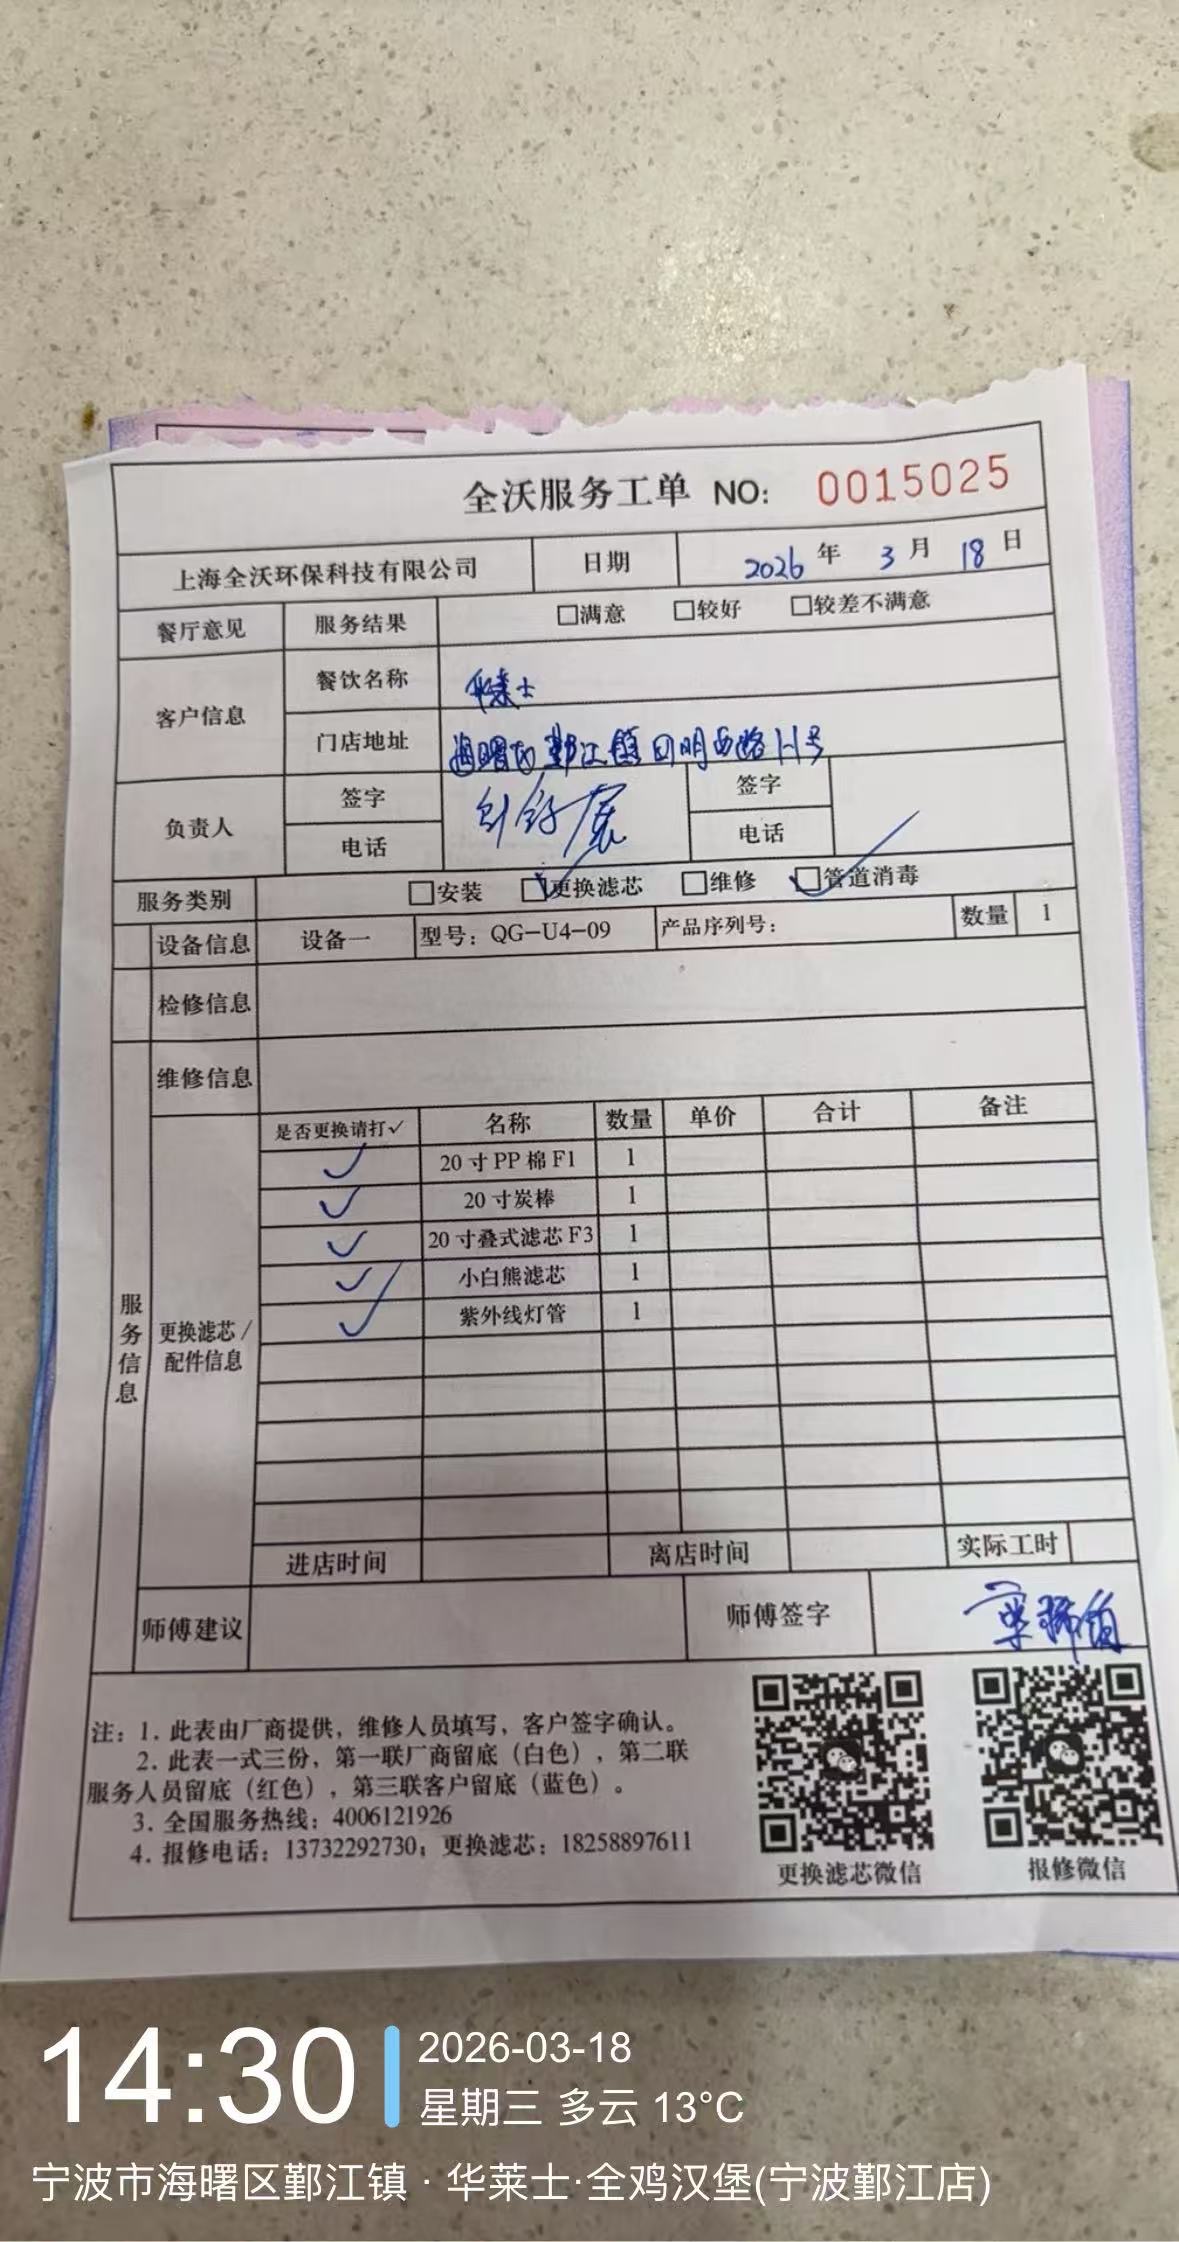 全沃服务工单 NO: 0015025
上海全沃环保科技有限公司 日期 2026 年 3 月 18 日
餐厅意见 服务结果 □满意 □较好 □较差不满意
客户信息 餐饮名称 华莱士
门店地址 海曙区鄞江镇四明西路11号
负责人 签字 签字
电话 电话
服务类别 □安装 ☑更换滤芯 □维修 ☑管道消毒
设备信息 设备一 型号：QG-U4-09 产品序列号： 数量 1
检修信息
维修信息
服务信息
更换滤芯/
配件信息
是否更换请打✓ 名称 数量 单价 合计 备注
✓ 20 寸 PP 棉 F1 1
✓ 20 寸炭棒 1
✓ 20 寸叠式滤芯 F3 1
✓ 小白熊滤芯 1
✓ 紫外线灯管 1
进店时间 离店时间 实际工时
师傅建议 师傅签字
注：1. 此表由厂商提供，维修人员填写，客户签字确认。
2. 此表一式三份，第一联厂商留底（白色），第二联
服务人员留底（红色），第三联客户留底（蓝色）。
3. 全国服务热线：4006121926
4. 报修电话：13732292730；更换滤芯：18258897611
更换滤芯微信 报修微信
14:30
2026-03-18
星期三 多云 13°C
宁波市海曙区鄞江镇 · 华莱士·全鸡汉堡(宁波鄞江店)